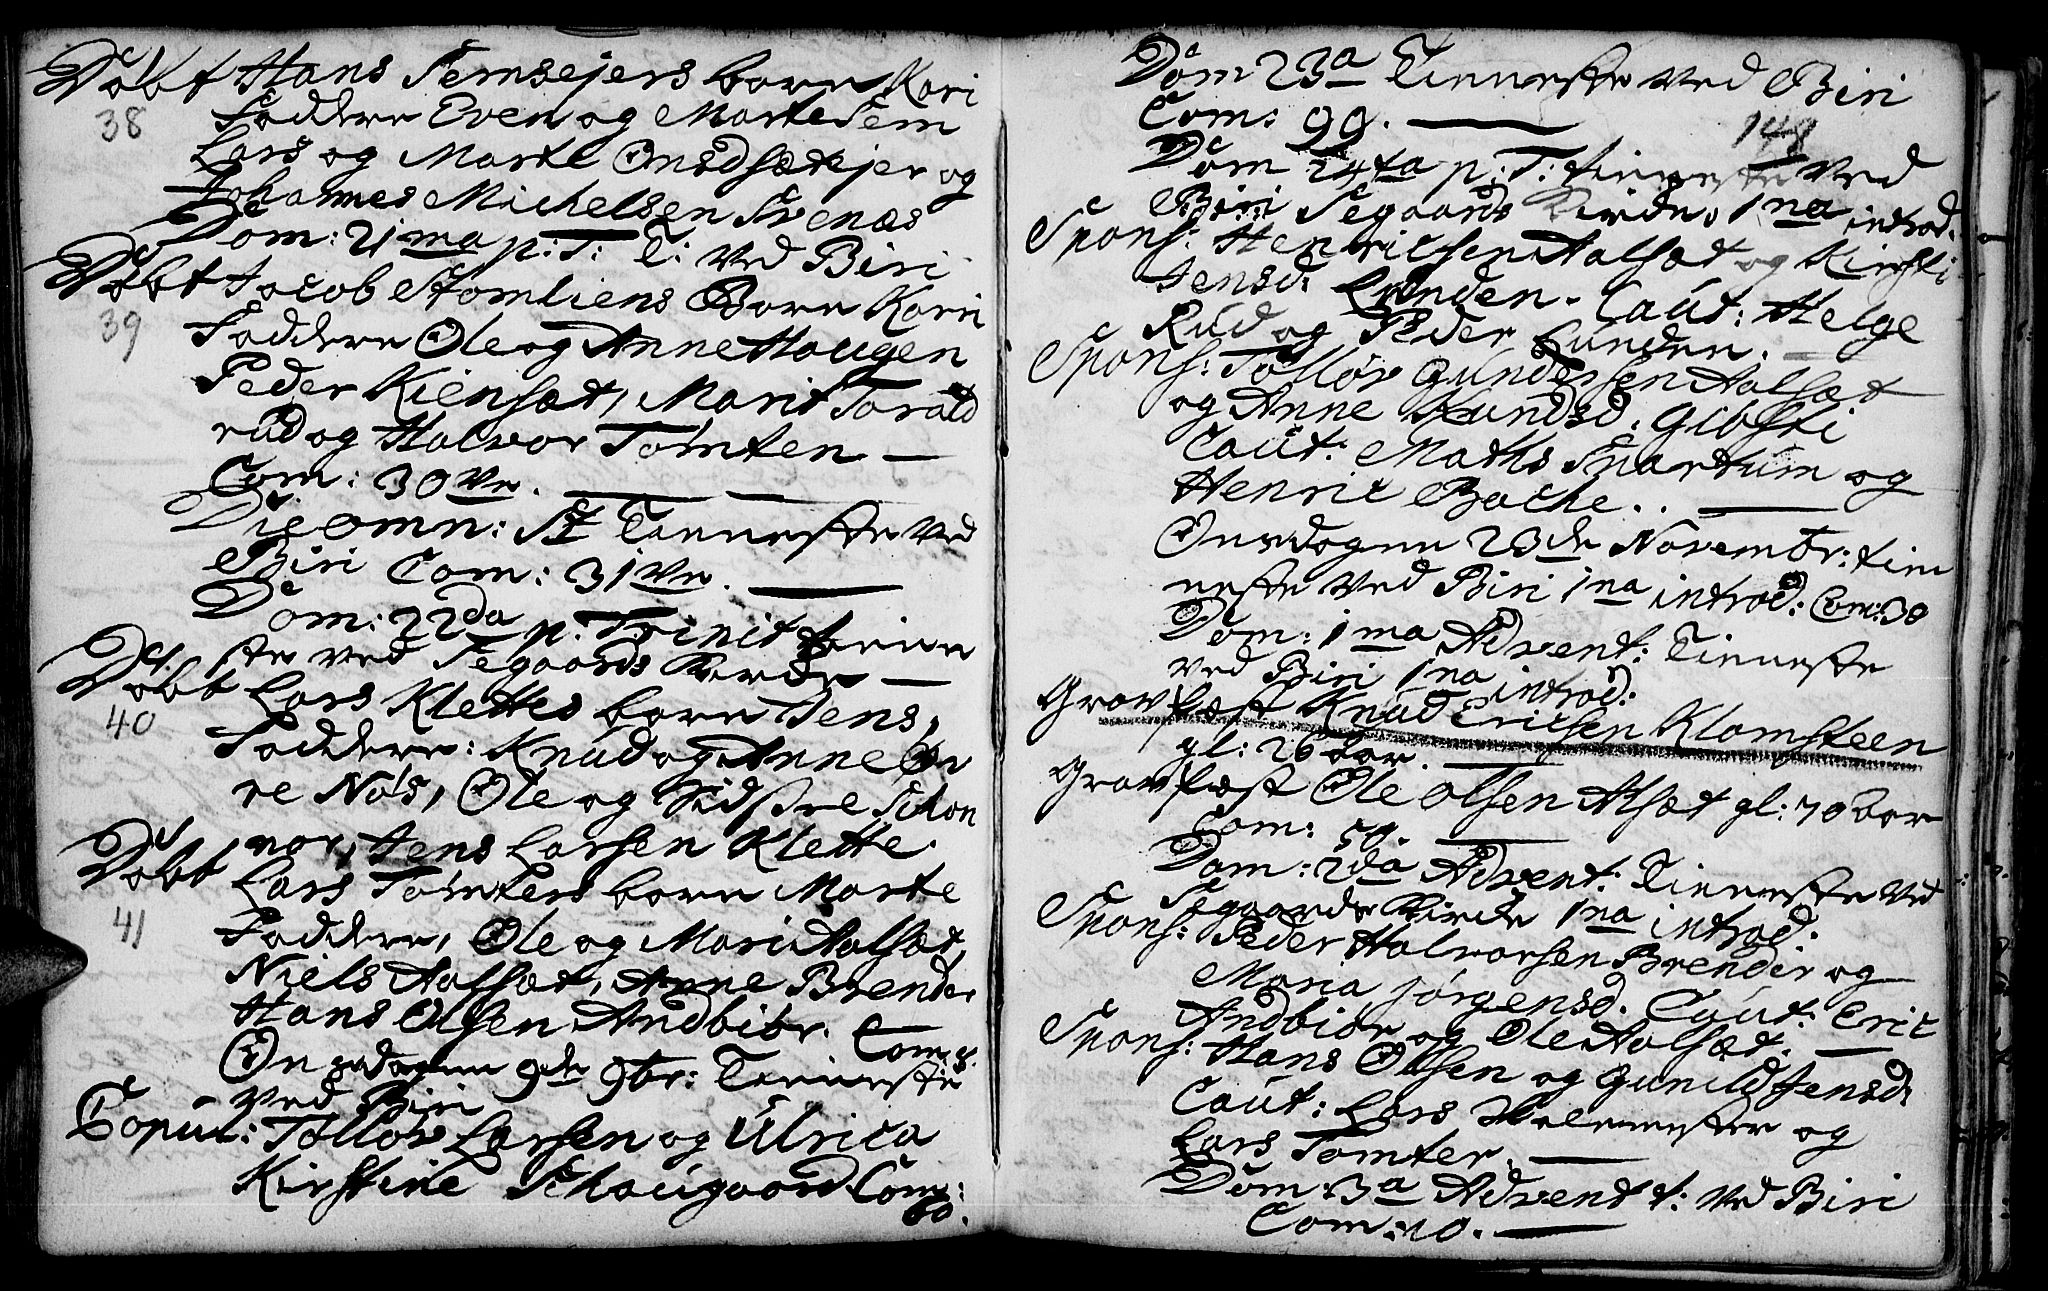 Døbt Hans Semsejers barn Kari
38
Faddere Even og Marte Sem
Lars og Marte Onsdsætejer og
Johannes Michelsen Svenæs
Dom: 21ma p: T: T: Ved Biri
Døbt Jacob Stomliens Barn Kari
39
Faddere Ole og Anne Haugen
Peder Kiensæt, Marit Torald
rud og Halvor Tomten
Com: 30 Ve.
Die omn: St Tieneste Ved
Biri Com: 31 Ve.
Dom: 22da p. Trinit tiene
ste ved Segaards Kirche
Døbt Lars Klettes barn Jens,
40
Faddere: Knud og Anne Øv
re Nøs, Ole og Sidsele Schon
nor, Jens Larsen Klette.
Døbt Lars Tomters barn Marte
41
Faddere, Ole og Mari Aalsæt
Niels Aalsæt, Anne Brender
Hans Olsen Andbiør. Com: 8.
Onsdagen 9de 9br: Tieneste
Ved Biri
Copul: Tolløv Larsen og Ulrica
Kirstine Schougaard Com:
60.
Dom 23a Tieneste Ved Biri
Com: 99.
148
Dom 24ta p: T: tieneste Ved
Biri Segaards Kirche, 1na introd.
Spons: Henricsen Aalsæt og Kirsti
Jensd: Lunden. Caut: Helge
Rud og Peder Lunden.
Spons: Tolløv Gundersen Aalsæt
og Anne Knudsd. Glosti
Caut: Maths Snartum og
Henric Bache.
Onsdagen 23de Novembr: tien
neste Ved Biri 1na introd: Com: 38
Dom: 1ma Advent: Tieneste
Ved Biri 1na introd:
Gravfæst Knud Ericsen Klomsteen
gl: 26 aar.
Gravfæst Ole Olsen Alsæt gl: 70 aar
Com: 50.
Dom: 2da Advent: Tieneste Ved
Segaards Kirche 1na introd:
Spons: Peder Halvorsen Brender og
Maria Jørgensd. Caut: Eric
Andbiør og Ole Aalsæt.
Spons: Hans Olsen og Gunild Jensd:
Caut: Lars Skolemester og
Lars Tomter.
Dom: 3a Advent t: Ved Biri
Com: 10.